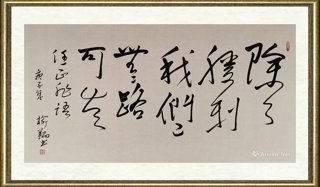 除了
勝利
我們
無路
可走
任正非語
庚子年